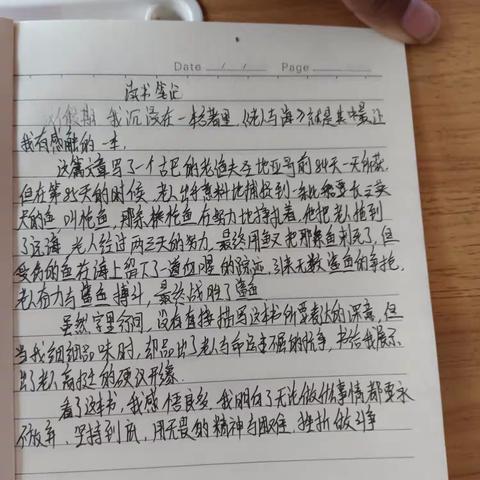 Date / / Page
读书笔记
假期我沉浸在一本名著里,《老人与海》就是其中最让
我有感触的一本。
这篇文章写了一个古巴的老渔夫圣地亚哥前84天一无所获,
但在第85天的时候,老人出乎意料地捕捉到一条比
大的鱼,叫枪鱼,那条枪鱼在努力地挣扎着,他把老人拖到
了远海,老人经过两三天的努力,最终用鱼叉把那条鱼刺死了,但
受伤的鱼在海上留下了一道血腥的踪迹,引来无数鲨鱼的争抢,
老人奋力与鲨鱼搏斗,最终战胜了鲨鱼
虽然字里行间,没有直接描写这本书所要表达的深意,但
当我细细品味时,却品出了老人与命运不屈的抗争,书给我展示
出了老人高超的硬汉形象.
看了这本书,我感悟良多,我明白了无论做什么事情都要永
不放弃、坚持到底,用无畏的精神与困难、挫折做斗争